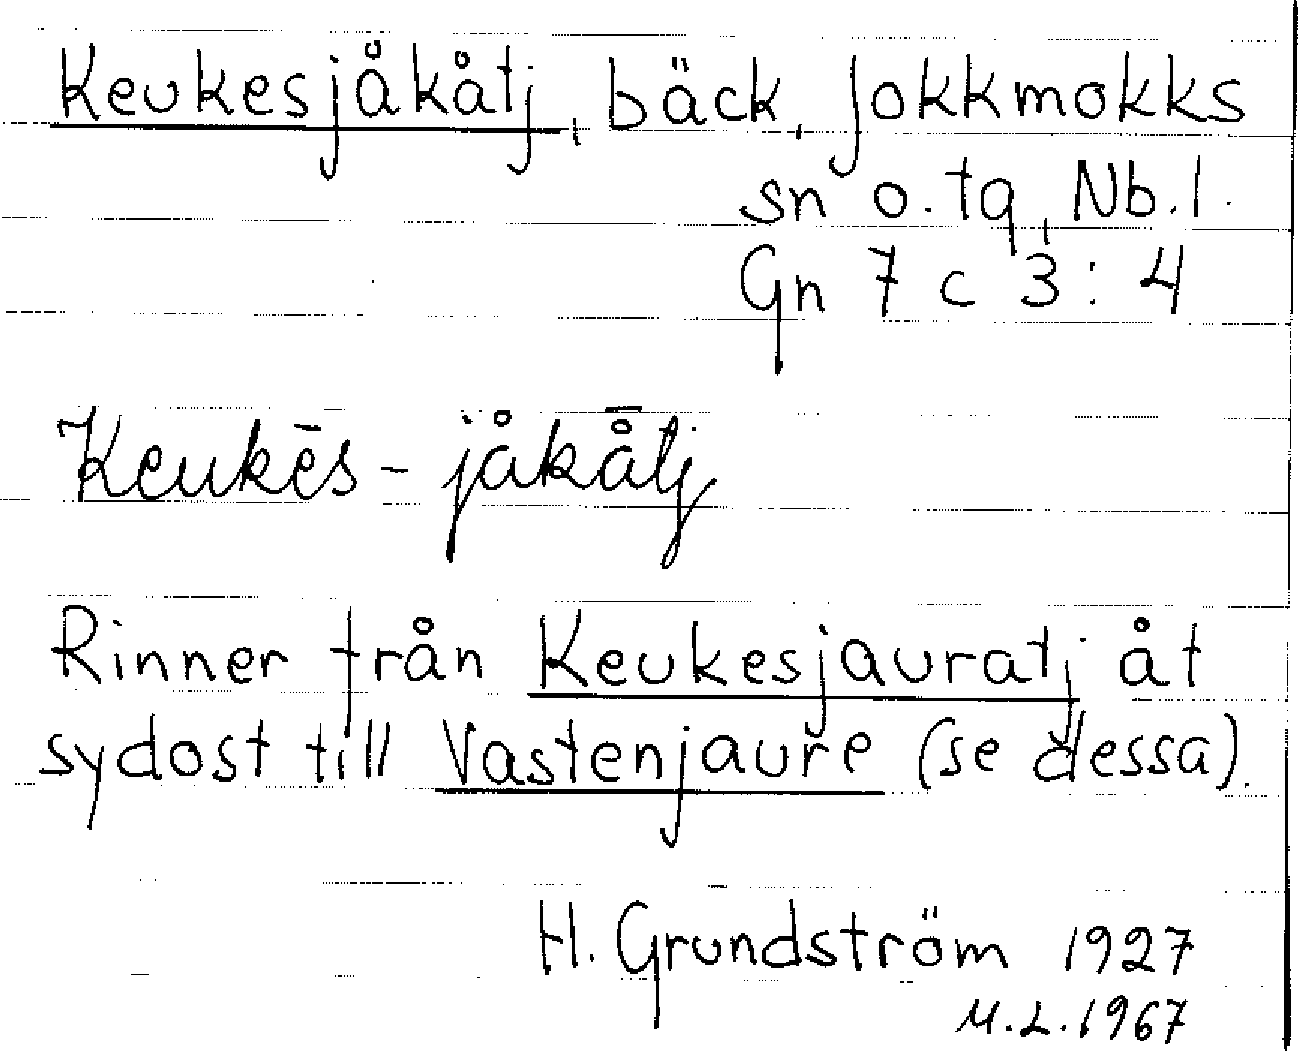 Keukesjåkåtj, bäck, Jokkmokks
sn o. tg, Nb. l.
Gn 7 c 3 : 4
Keukēs - jåkå̄tj
Rinner från Keukesjauratj åt
sydost till Vastenjaure (se dessa).
H. Grundström 1927
M.L. 1967